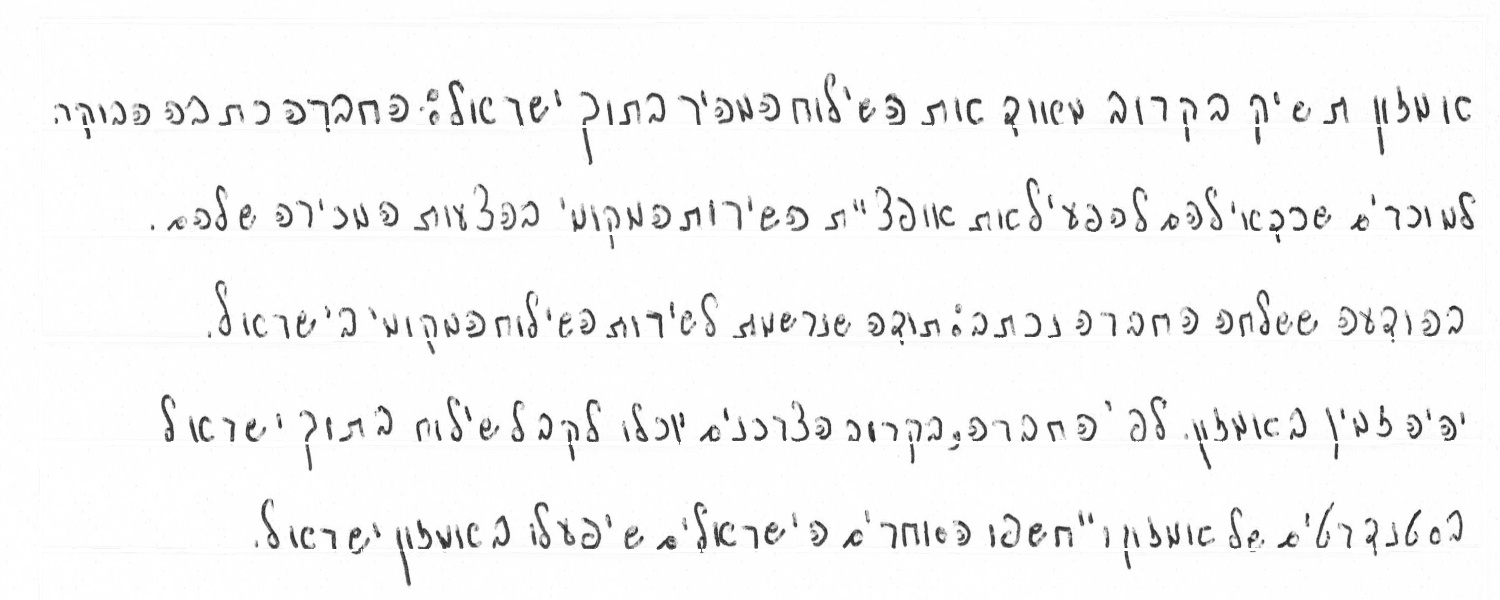 אמזון תשיק בקרוב מאוד את השילוח המהיר בתוך ישראל: החברה כתבה הבוקר
למוכרים שכדאי להם להפעיל את אופציית השירות המקומי בהצעות המכירה שלהם.
בהודעה ששלחה החברה נכתב: תודה שנרשמת לשירות השילוח המקומי בישראל.
יהיה זמין באמזון. לפי החברה, בקרוב הצרכנים יוכלו לקבל שילוח בתוך ישראל
בסטנדרטים של אמזון וייחשפו הסוחרים הישראלים שיפעלו באמזון ישראל.